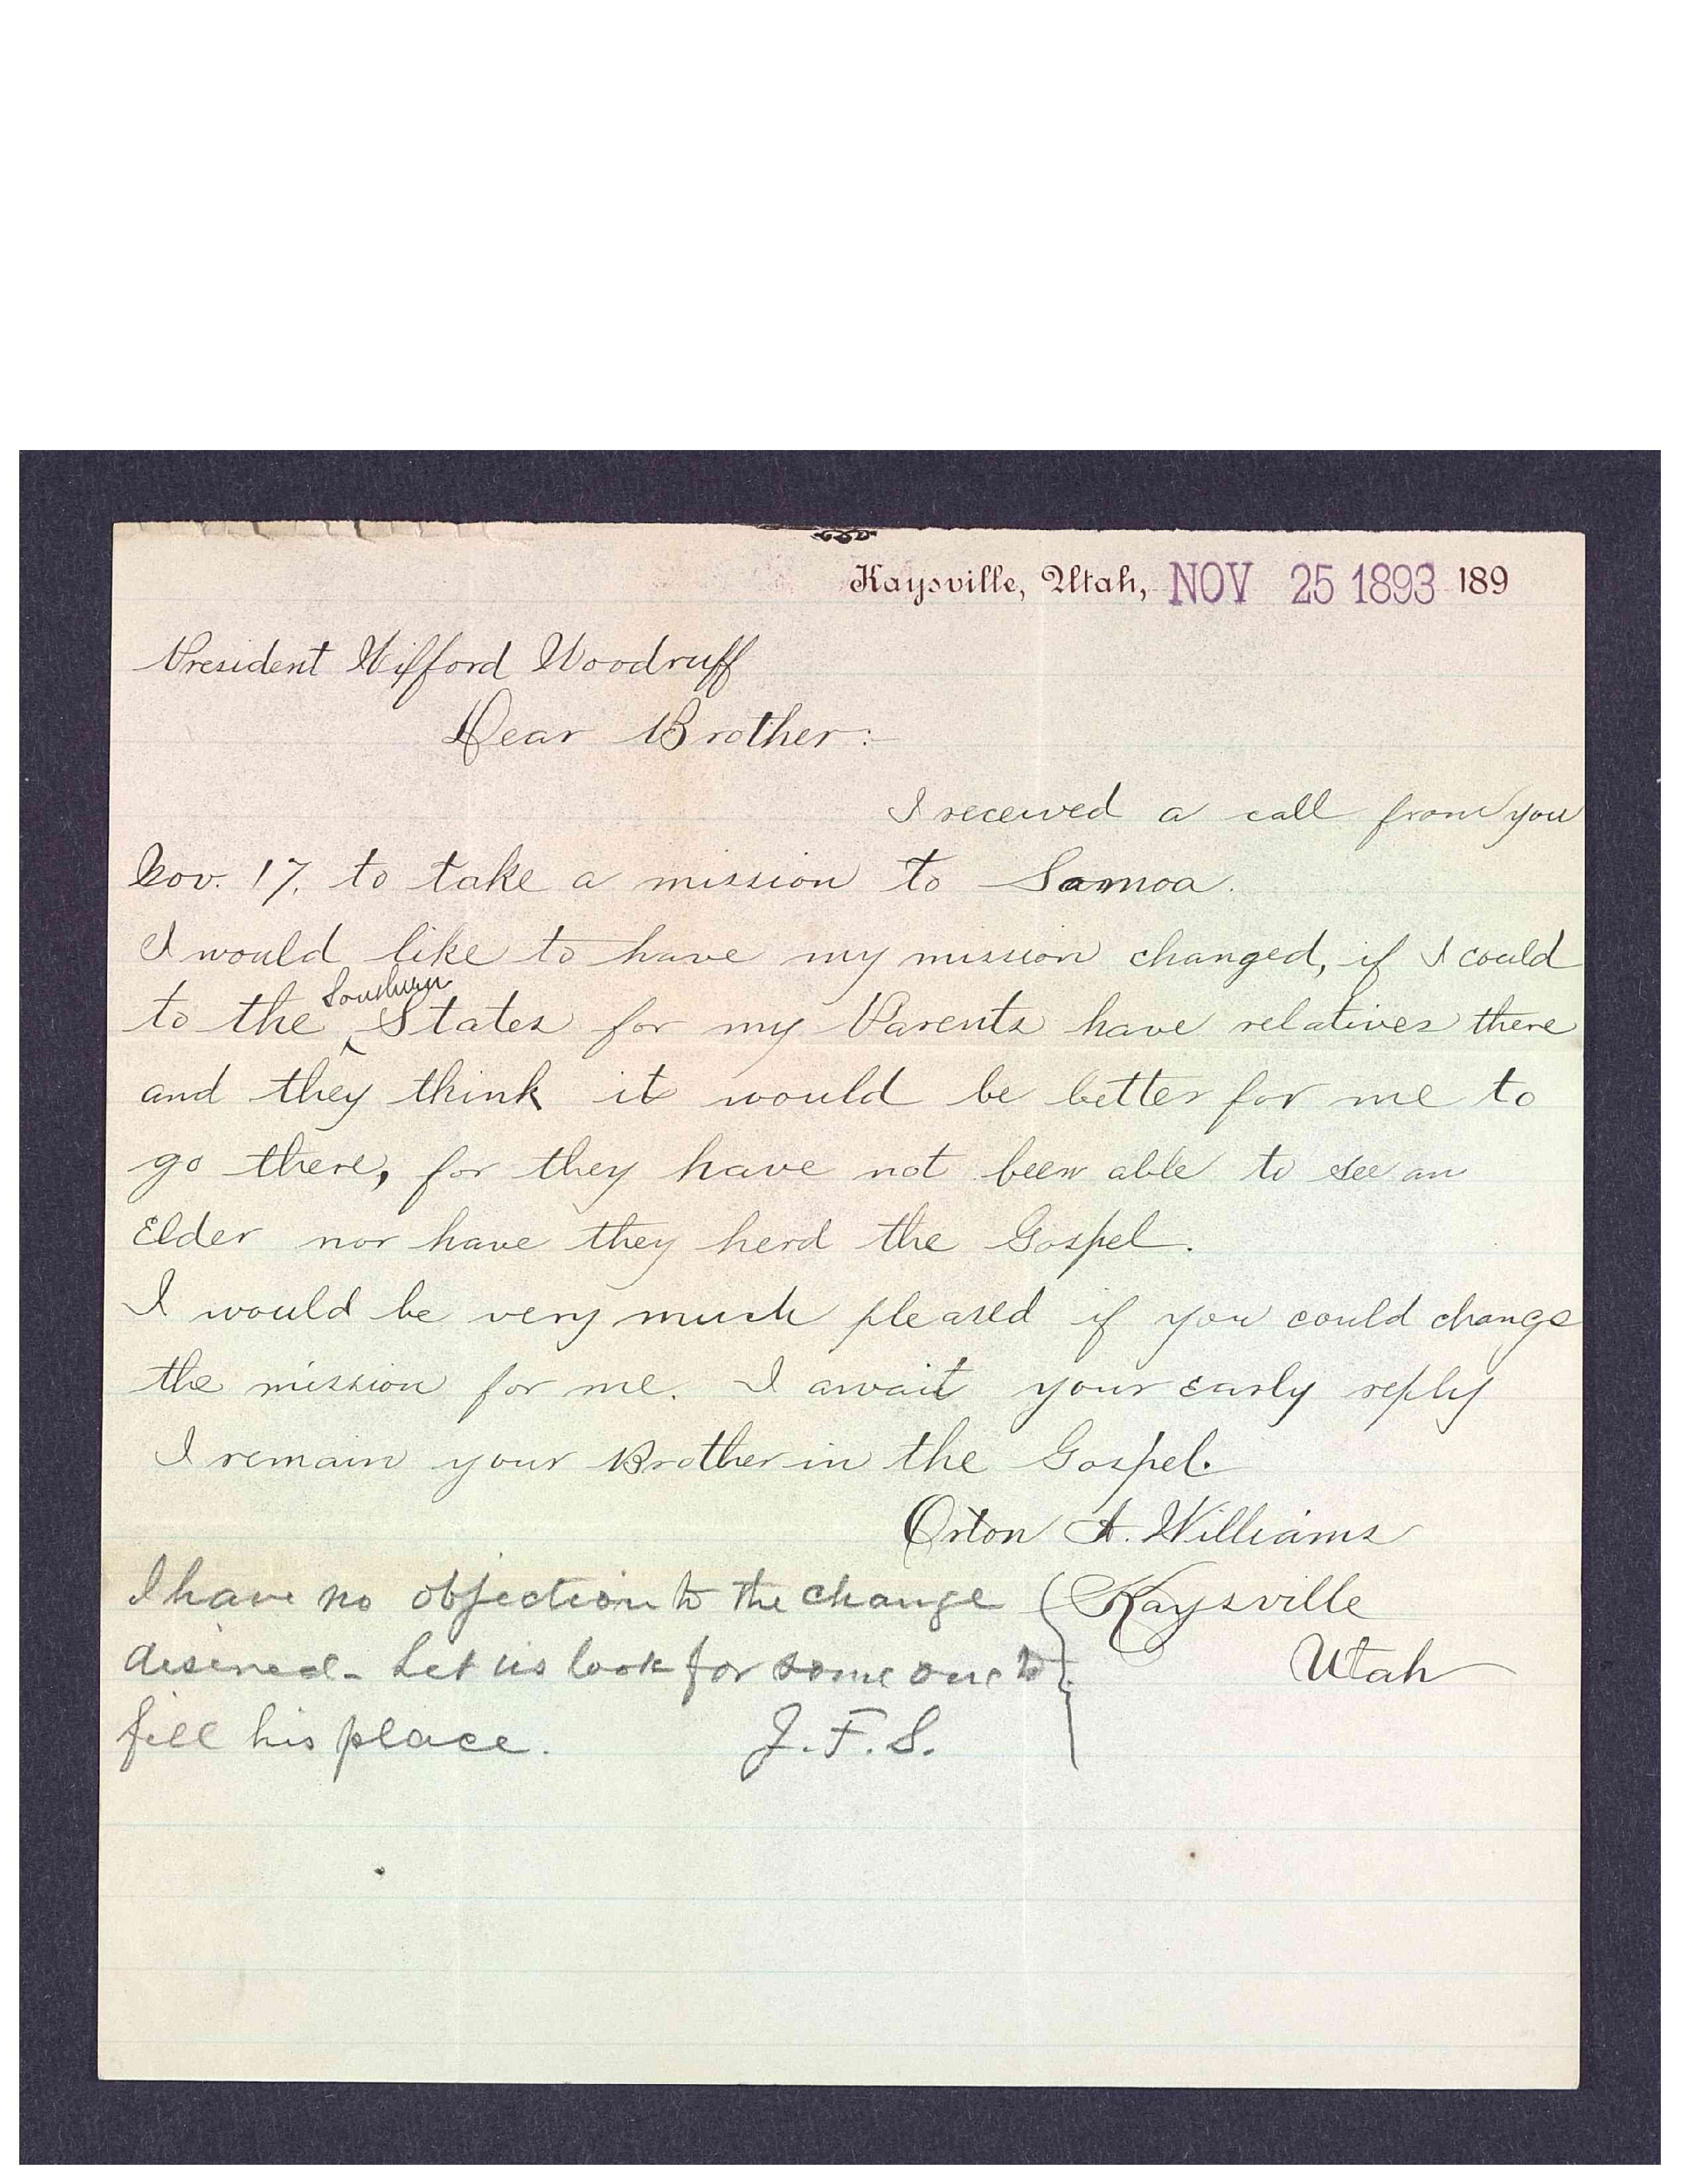 Kaysville, Utah, NOV 25 1893 189
President Wifford Woodruff
Dear Brother:
I received a call from you
Nov. 17, to take a mission to Samoa.
I would like to have my mission changed, if I could
Southern
to the ^ States for my Parents have relatives there
and they think it would be better for me to
go there, for they have not been able to see an
Elder nor have they herd the Gospel.
I would be very much pleased if you could change
the mission for me. I await your early reply
I remain your Brother in the Gospel.
Orton A. Williams
I have no objection to the change { Kaysville
desired - Let us look for some one to Utah
fill his place. J. F. S.